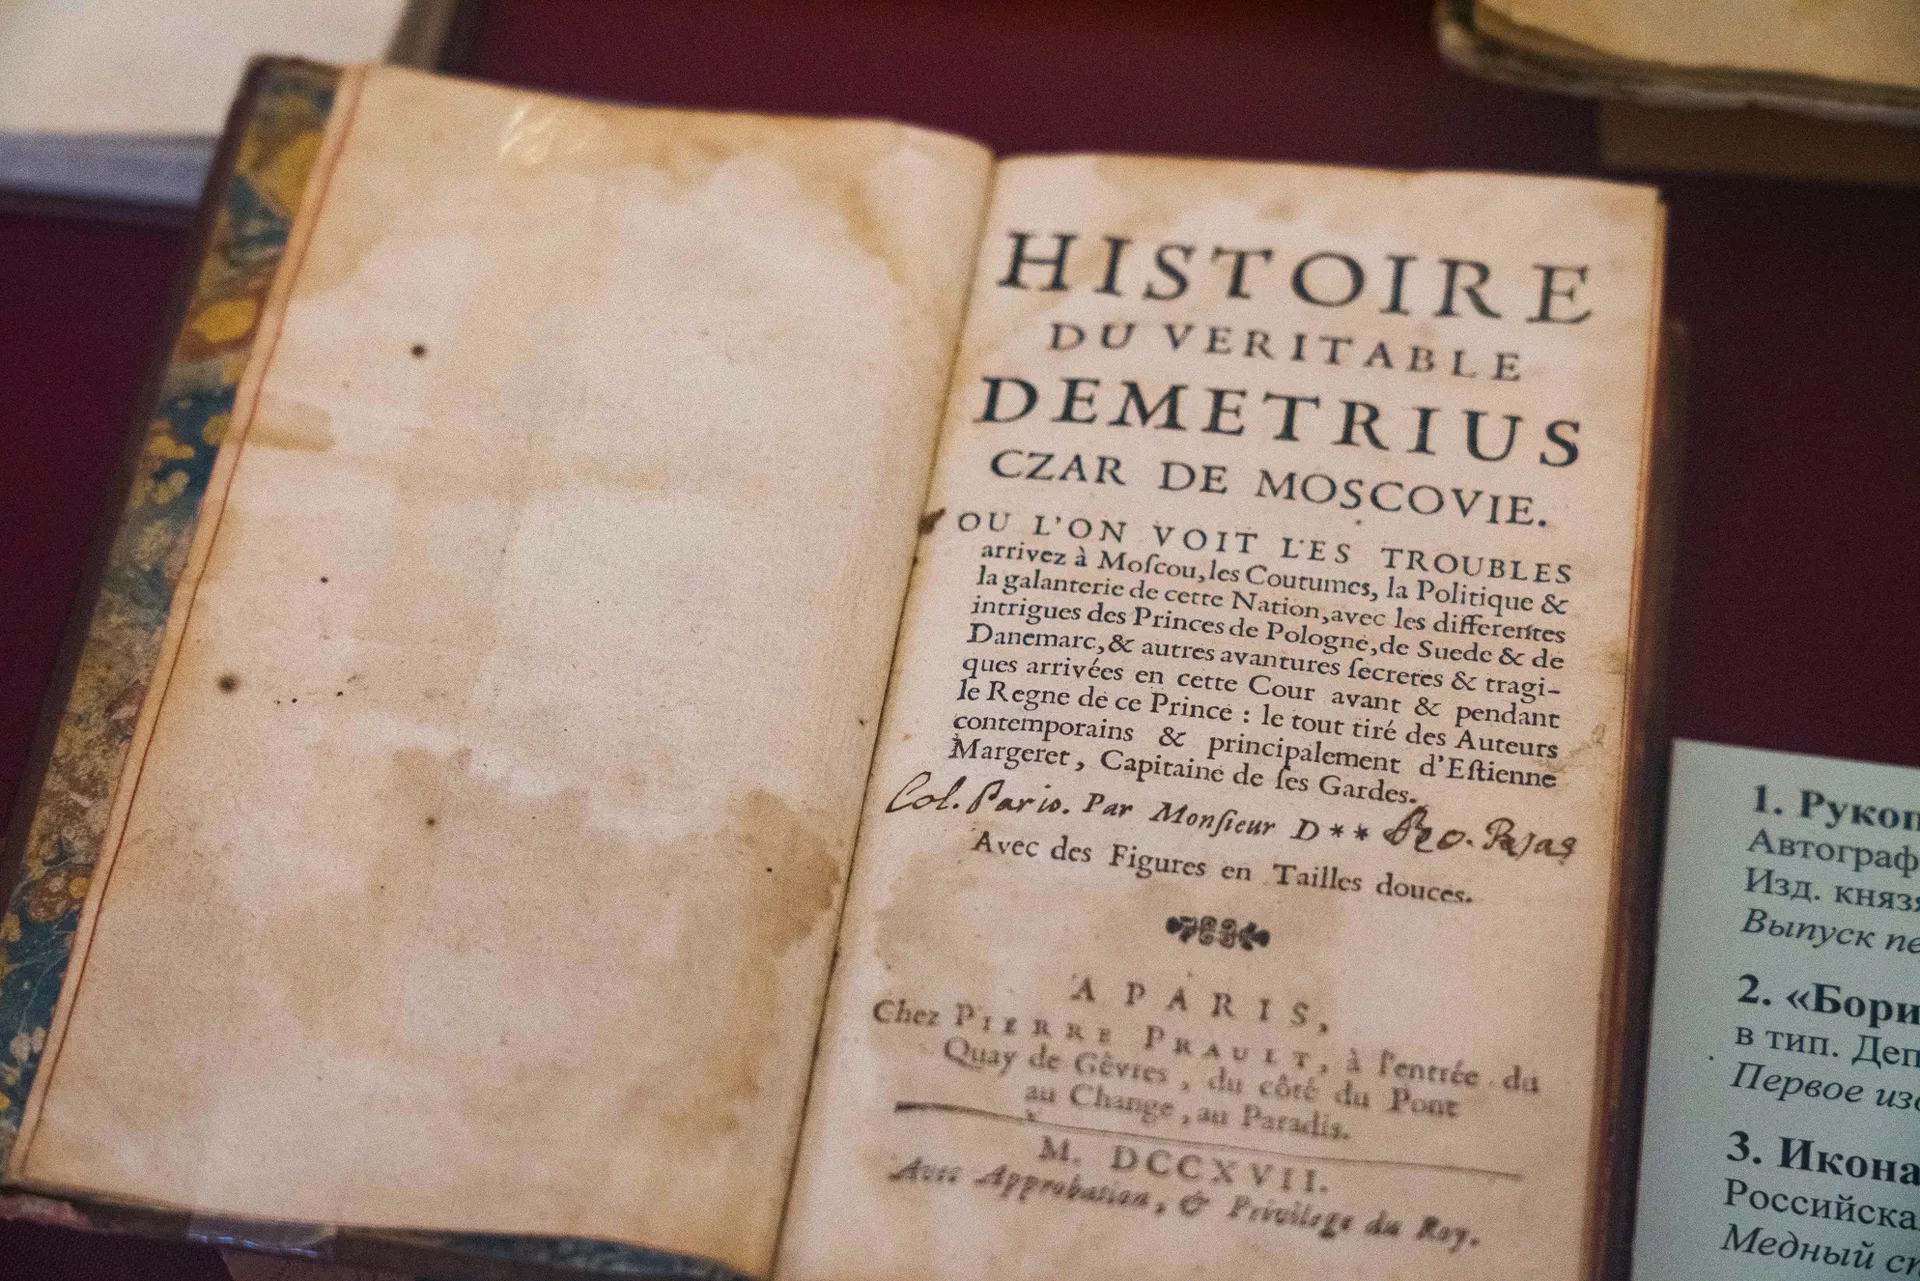 HISTOIRE
DU VERITABLE
DEMETRIUS
CZAR DE MOSCOVIE.
OU L'ON VOIT L'ES TROUBLES
arrivez à Moſcou, les Coutumes, la Politique &
la galanterie de cette Nation, avec les differentes
intrigues des Princes de Pologne, de Suede & de
Danemarc, & autres avantures ſecretes & tragi-
ques arrivées en cette Cour avant & pendant
le Regne de ce Prince : le tout tiré des Auteurs
contemporains & principalement d'Eſtienne
Margeret, Capitaine de ſes Gardes.
Col. Paris. Par Monſieur D**
Avec des Figures en Tailles douces.
A PARIS,
Chez PIERRE PRAULT, à l'entrée du
Quay de Gêvres, du côté du Pont
au Change, au Paradis.
M. DCCXVII.
Avec Approbation, & Privilege du Roy.
1. Рукоп
Автограф
Изд. княз
Выпуск пе
2. «Бори
в тип. Деп
Первое изд
3. Икона
Российска
Медный